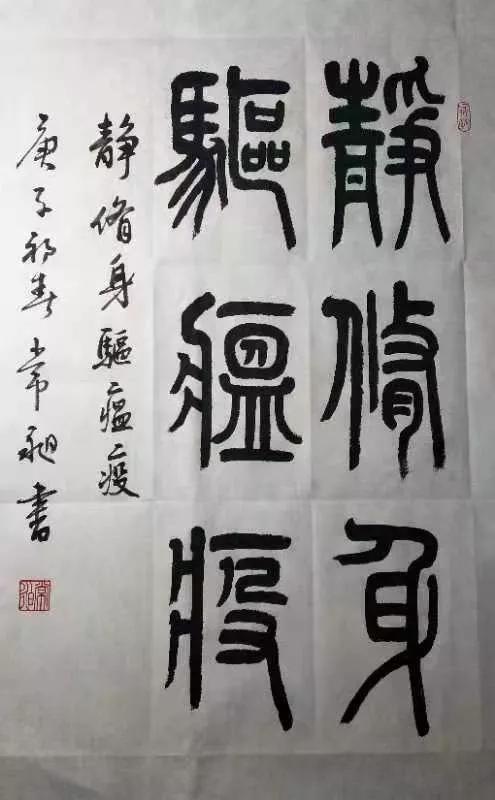 靜脩身
驅瘟疫
靜脩身驅瘟疫
庚子初春常昶書